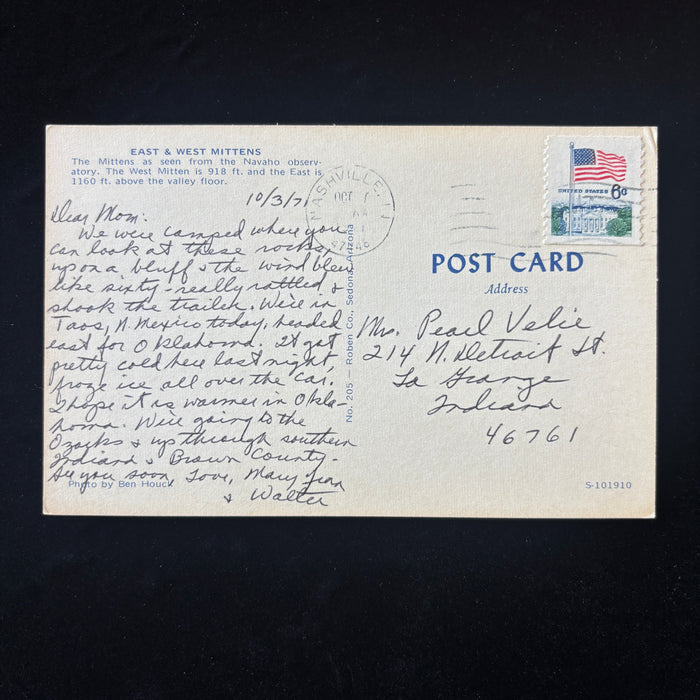 EAST & WEST MITTENS
The Mittens as seen from the Navaho observ-
atory. The West Mitten is 918 ft. and the East is
1160 ft. above the valley floor.
10/3/71
Dear Mom:
We were camped where you
can look at these rocks,
up on a bluff & the wind blew
like sixty - really rattled &
shook the trailer. We're in
Taos, N. Mexico today, headed
east for Oklahoma. It got
pretty cold here last night,
froze ice all over the car.
I hope it is warmer in Okla-
homa. We're going to the
Ozarks & up through southern
Indiana & Brown County-
See you soon, Love, Mary Jean
& Walter
Photo by Ben Houck
No. 205 Roben Co., Sedona, Arizona
NASHVILLE,
OCT
UNITED STATES 6¢
POST CARD
Address
Mrs. Pearl Velie
214 N. Detroit St.
La Grange
Indiana
46761
S-101910